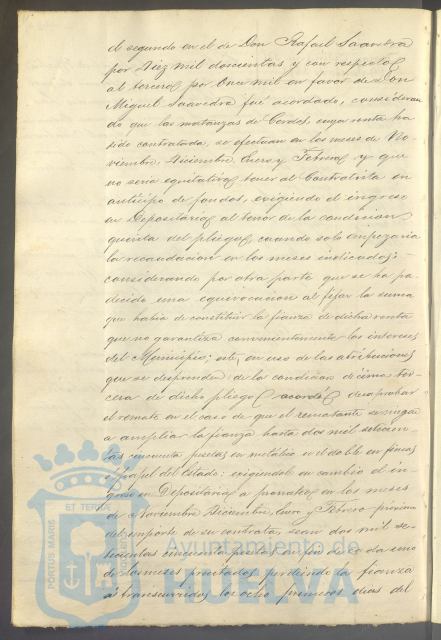 el segundo en el de Don Rafael Saavedra
por Diez mil doscientas y con respecto
al tercero por Once mil en favor de Don
Miguel Saavedra fué acordado, consideran
do que las matanzas de Cerdos, cuya renta ha
sido contratada, se efectuan en los meses de No
viembre, Diciembre, Enero y Febrero y que
no seria equitativo tener al Contratista en
anticipo de fondos, exigiendo el ingreso
en Depositaria al tenor de la condicion
quinta del pliego, cuando solo empezaria
la recaudacion en los meses indicados;
considerando por otra parte que se ha pa
decido una equivocacion al fijar la suma
que habia de constituir la fianza de dicha renta
que no garantiza convenientemente los intereses
del Municipio; este, en uso de las atribuciones
que se desprenden de la condicion décima ter
cera de dicho pliego acordó desaprobar
el remate en el caso de que el rematante se niegue
a ampliar la fianza hasta dos mil setecien
tas cincuenta pesetas en metalico o el doble en fincas
o papel del Estado: exigiendole en cambio el in
greso en Depositaria a prorrata en los meses
de Noviembre, Diciembre, Enero y Febrero próximo
del importe de su contrata, sean dos mil se
tecientas cincuenta pesetas en fin de cada uno
de los meses precitados, perdiendo la fianza
si transcurridos los ocho primeros dias del
PORTUS MARIS ET TERRÆ
Ayuntamiento de
HUELVA